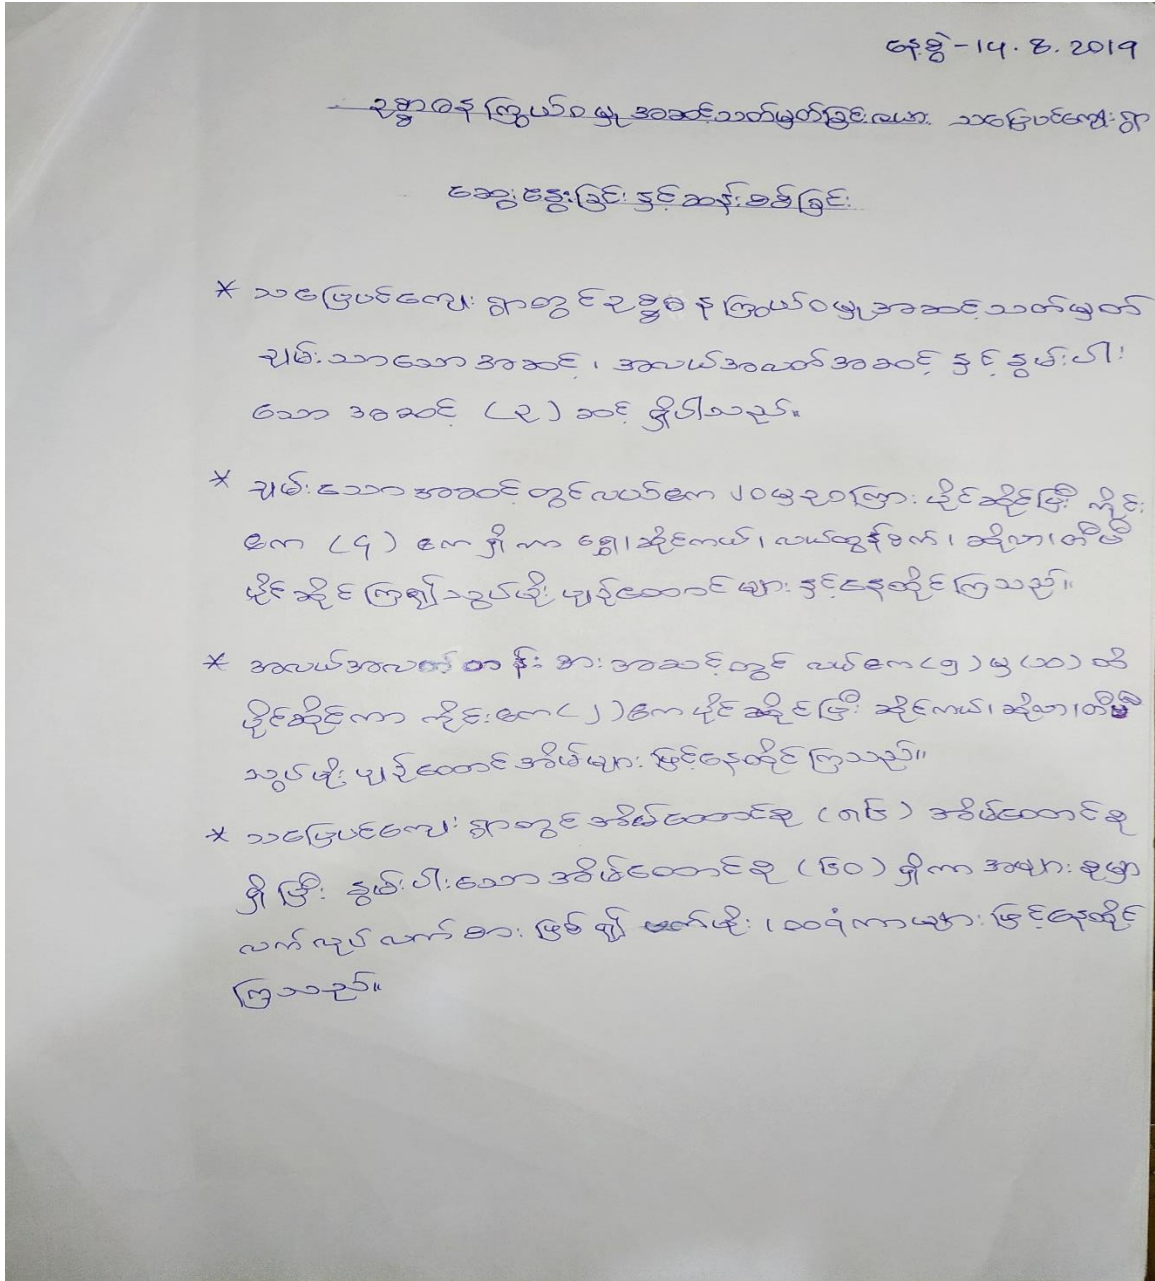 နေ့စွဲ - 14.8.2019
ဥစ္စာဓန ကြွယ်ဝမှု အဆင့်သတ်မှတ်ခြင်းဇယား သပြေပင်ကျေးရွာ
ဆွေးနွေးခြင်း နှင့် ဆန်းစစ်ခြင်း
* သပြေပင်ကျေးရွာတွင် ဥစ္စာဓန ကြွယ်ဝမှု အဆင့်သတ်မှတ်
ချမ်းသာသော အဆင့်၊ အလယ်အလတ်အဆင့် နှင့် နွမ်းပါး
သော အဆင့် (၃) ဆင့် ရှိပါသည်။
* ချမ်းသောအဆင့်တွင် လယ်ဧက ၂၀ မှ ၃၀ ကြား ပိုင်ဆိုင်ပြီး ကိုင်း
ဧက (၄) ဧက ရှိကာ ရွှေ၊ ဆိုင်ကယ်၊ လယ်ထွန်စက်၊ ဆိုလာ၊ တီဗီ
ပိုင်ဆိုင်ကြ၍ သွပ်မိုး ပျဉ်ထောင်များ နှင့်နေထိုင်ကြသည်။
* အလယ်အလတ်တန်းစားအဆင့်တွင် လယ်ဧက (၅) မှ (၁၀) ထိ
ပိုင်ဆိုင်ကာ ကိုင်းဧက (၂) ဧက ပိုင်ဆိုင်ပြီး ဆိုင်ကယ်၊ ဆိုလာ၊ တီဗီ
သွပ်မိုး ပျဉ်ထောင်အိမ်များ ဖြင့်နေထိုင်ကြသည်။
* သပြေပင်ကျေးရွာတွင် အိမ်ထောင်စု (၈၆) အိမ်ထောင်စု
ရှိပြီး နွမ်းပါးသော အိမ်ထောင်စု (၆၀) ရှိကာ အများစုမှာ
လက်လုပ်လက်စား ဖြစ်၍ ဖက်မိုး၊ ထရံကာများ ဖြင့်နေထိုင်
ကြသည်။